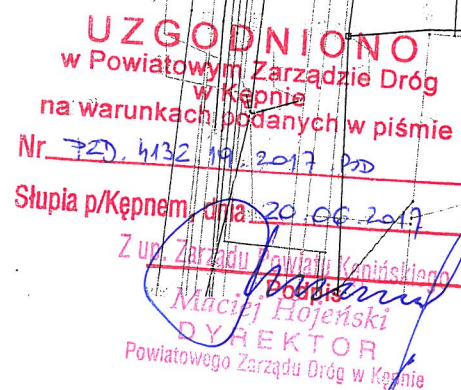 UZGODNIONO
w Powiatowym Zarządzie Dróg
w Kępnie
na warunkach podanych w piśmie
Nr PZD. 4132 19. 2017
Słupia p/Kępnem, dnia 20.06.2017
Z up. Zarządu Powiatu Kępińskiego
Podpis
Maciej Hojeński
DYREKTOR
Powiatowego Zarządu Dróg w Kępnie